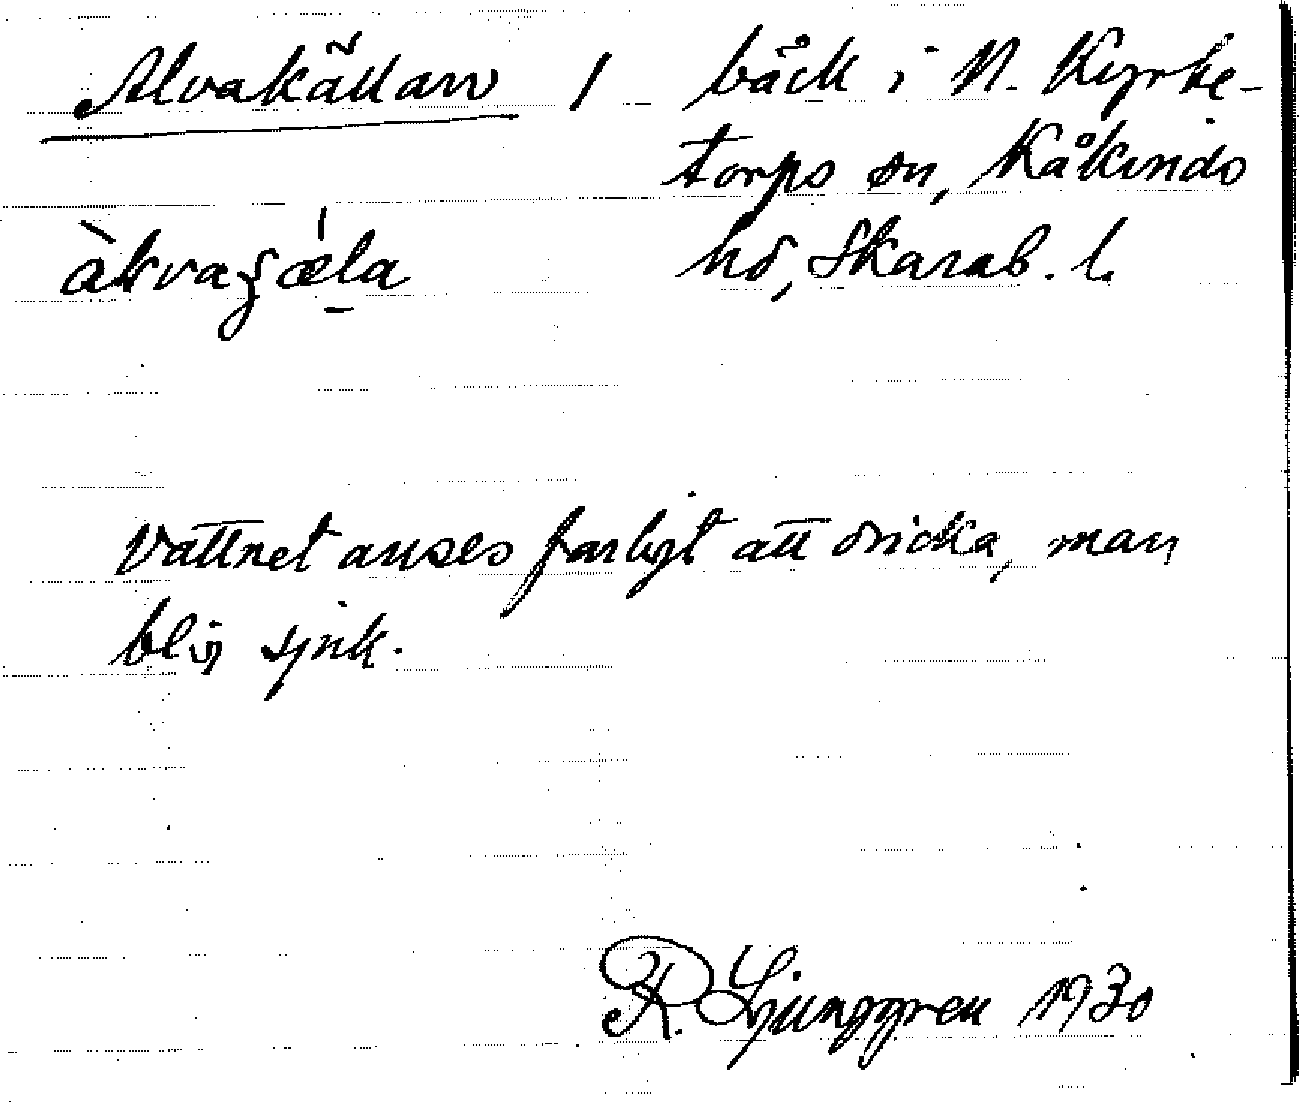 Alvakällan / bäck i N. Kyrke-
torps sn, Kåkinds
hd, Skarab. l.
Vattnet anses farligt att dricka, man
blir sjuk.
R. Ljunggren 1930